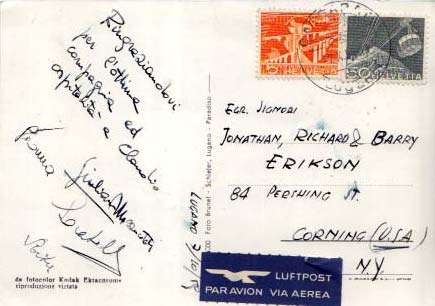 Ringraziandovi
per l'ottima
compagnia ed
ospitalità a Claudio
Gianna
Giuliano
da fotocolor Kodak Ektacnrome
riproduzione vietata
Foto Brunel - Schiefer, Lugano - Paradiso
LUGANO
5 HELVETIA
50 HELVETIA
EGR. SIGNORI
JONATHAN, RICHARD & BARRY
ERIKSON
84 PERSHING ST.
CORNING (U.S.A)
N.Y.
LUFTPOST
PAR AVION VIA AEREA